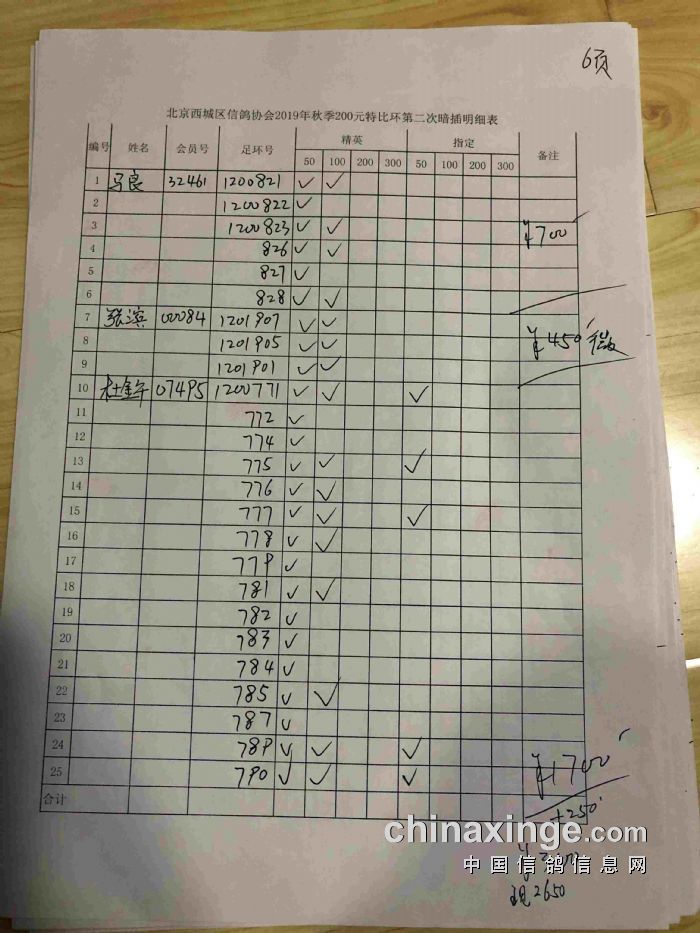 6页
北京西城区信鸽协会2019年秋季200元特比环第二次暗插明细表
编号 姓名 会员号 足环号 精英 指定 备注
50 100 200 300 50 100 200 300
1 马良 32461 1200821 ✓ ✓
2 1200822 ✓
3 1200823 ✓ ✓ ¥700
4 826 ✓ ✓
5 827 ✓
6 828 ✓ ✓
7 张滨 00084 1201907 ✓ ✓
8 1201905 ✓ ✓ ¥450 微
9 1201901 ✓ ✓
10 杜金午 07495 1200771 ✓ ✓ ✓
11 772 ✓
12 774 ✓
13 775 ✓ ✓ ✓
14 776 ✓ ✓
15 777 ✓ ✓ ✓
16 778 ✓ ✓
17 779 ✓
18 781 ✓ ✓
19 782 ✓
20 783 ✓
21 784 ✓
22 785 ✓ ✓
23 787 ✓
24 789 ✓ ✓ ✓
25 790 ✓ ✓ ✓ ¥1700
合计
+250
chinaxinge.com
中国信鸽信息网
现2650